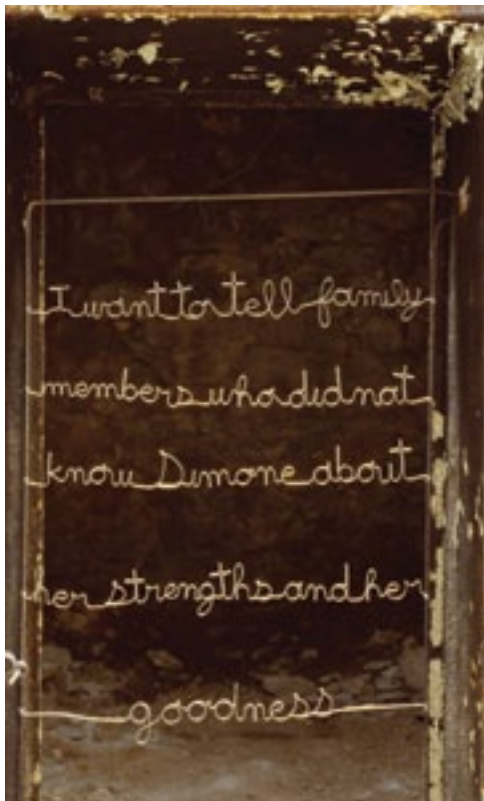 I want to tell family
members who did not
know Simone about
her strengths and her
goodness